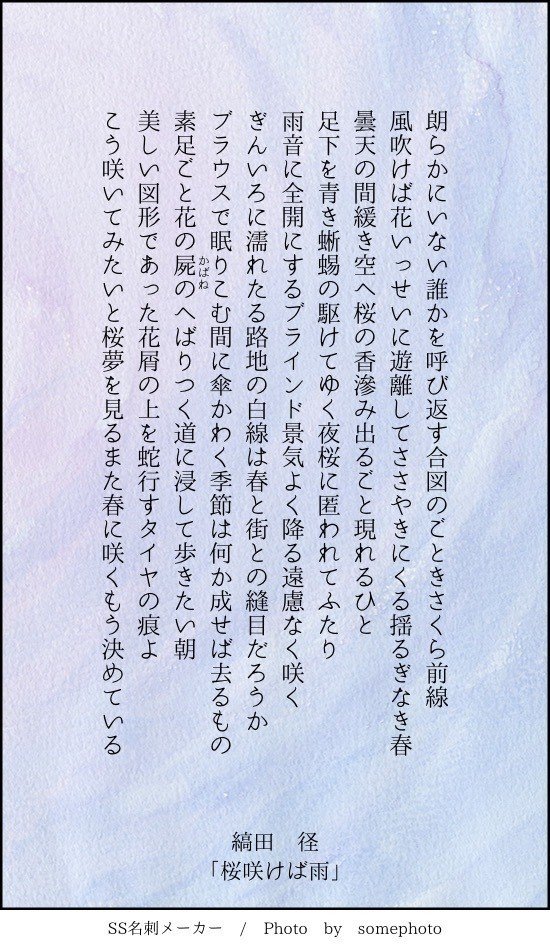 朗らかにいない誰かを呼び返す合図のごときさくら前線
風吹けば花いっせいに遊離してささやきにくる揺るぎなき春
曇天の間緩き空へ桜の香滲み出るごと現れるひと
足下を青き蜥蜴の駆けてゆく夜桜に匿われてふたり
雨音に全開にするブラインド景気よく降る遠慮なく咲く
ぎんいろに濡れたる路地の白線は春と街との縫目だろうか
ブラウスで眠りこむ間に傘かわく季節は何か成せば去るもの
素足ごと花の屍のへばりつく道に浸して歩きたい朝
かばね
美しい図形であった花屑の上を蛇行すタイヤの痕よ
こう咲いてみたいと桜夢を見るまた春に咲くもう決めている
縞田 径
「桜咲けば雨」
SS名刺メーカー / Photo by somephoto